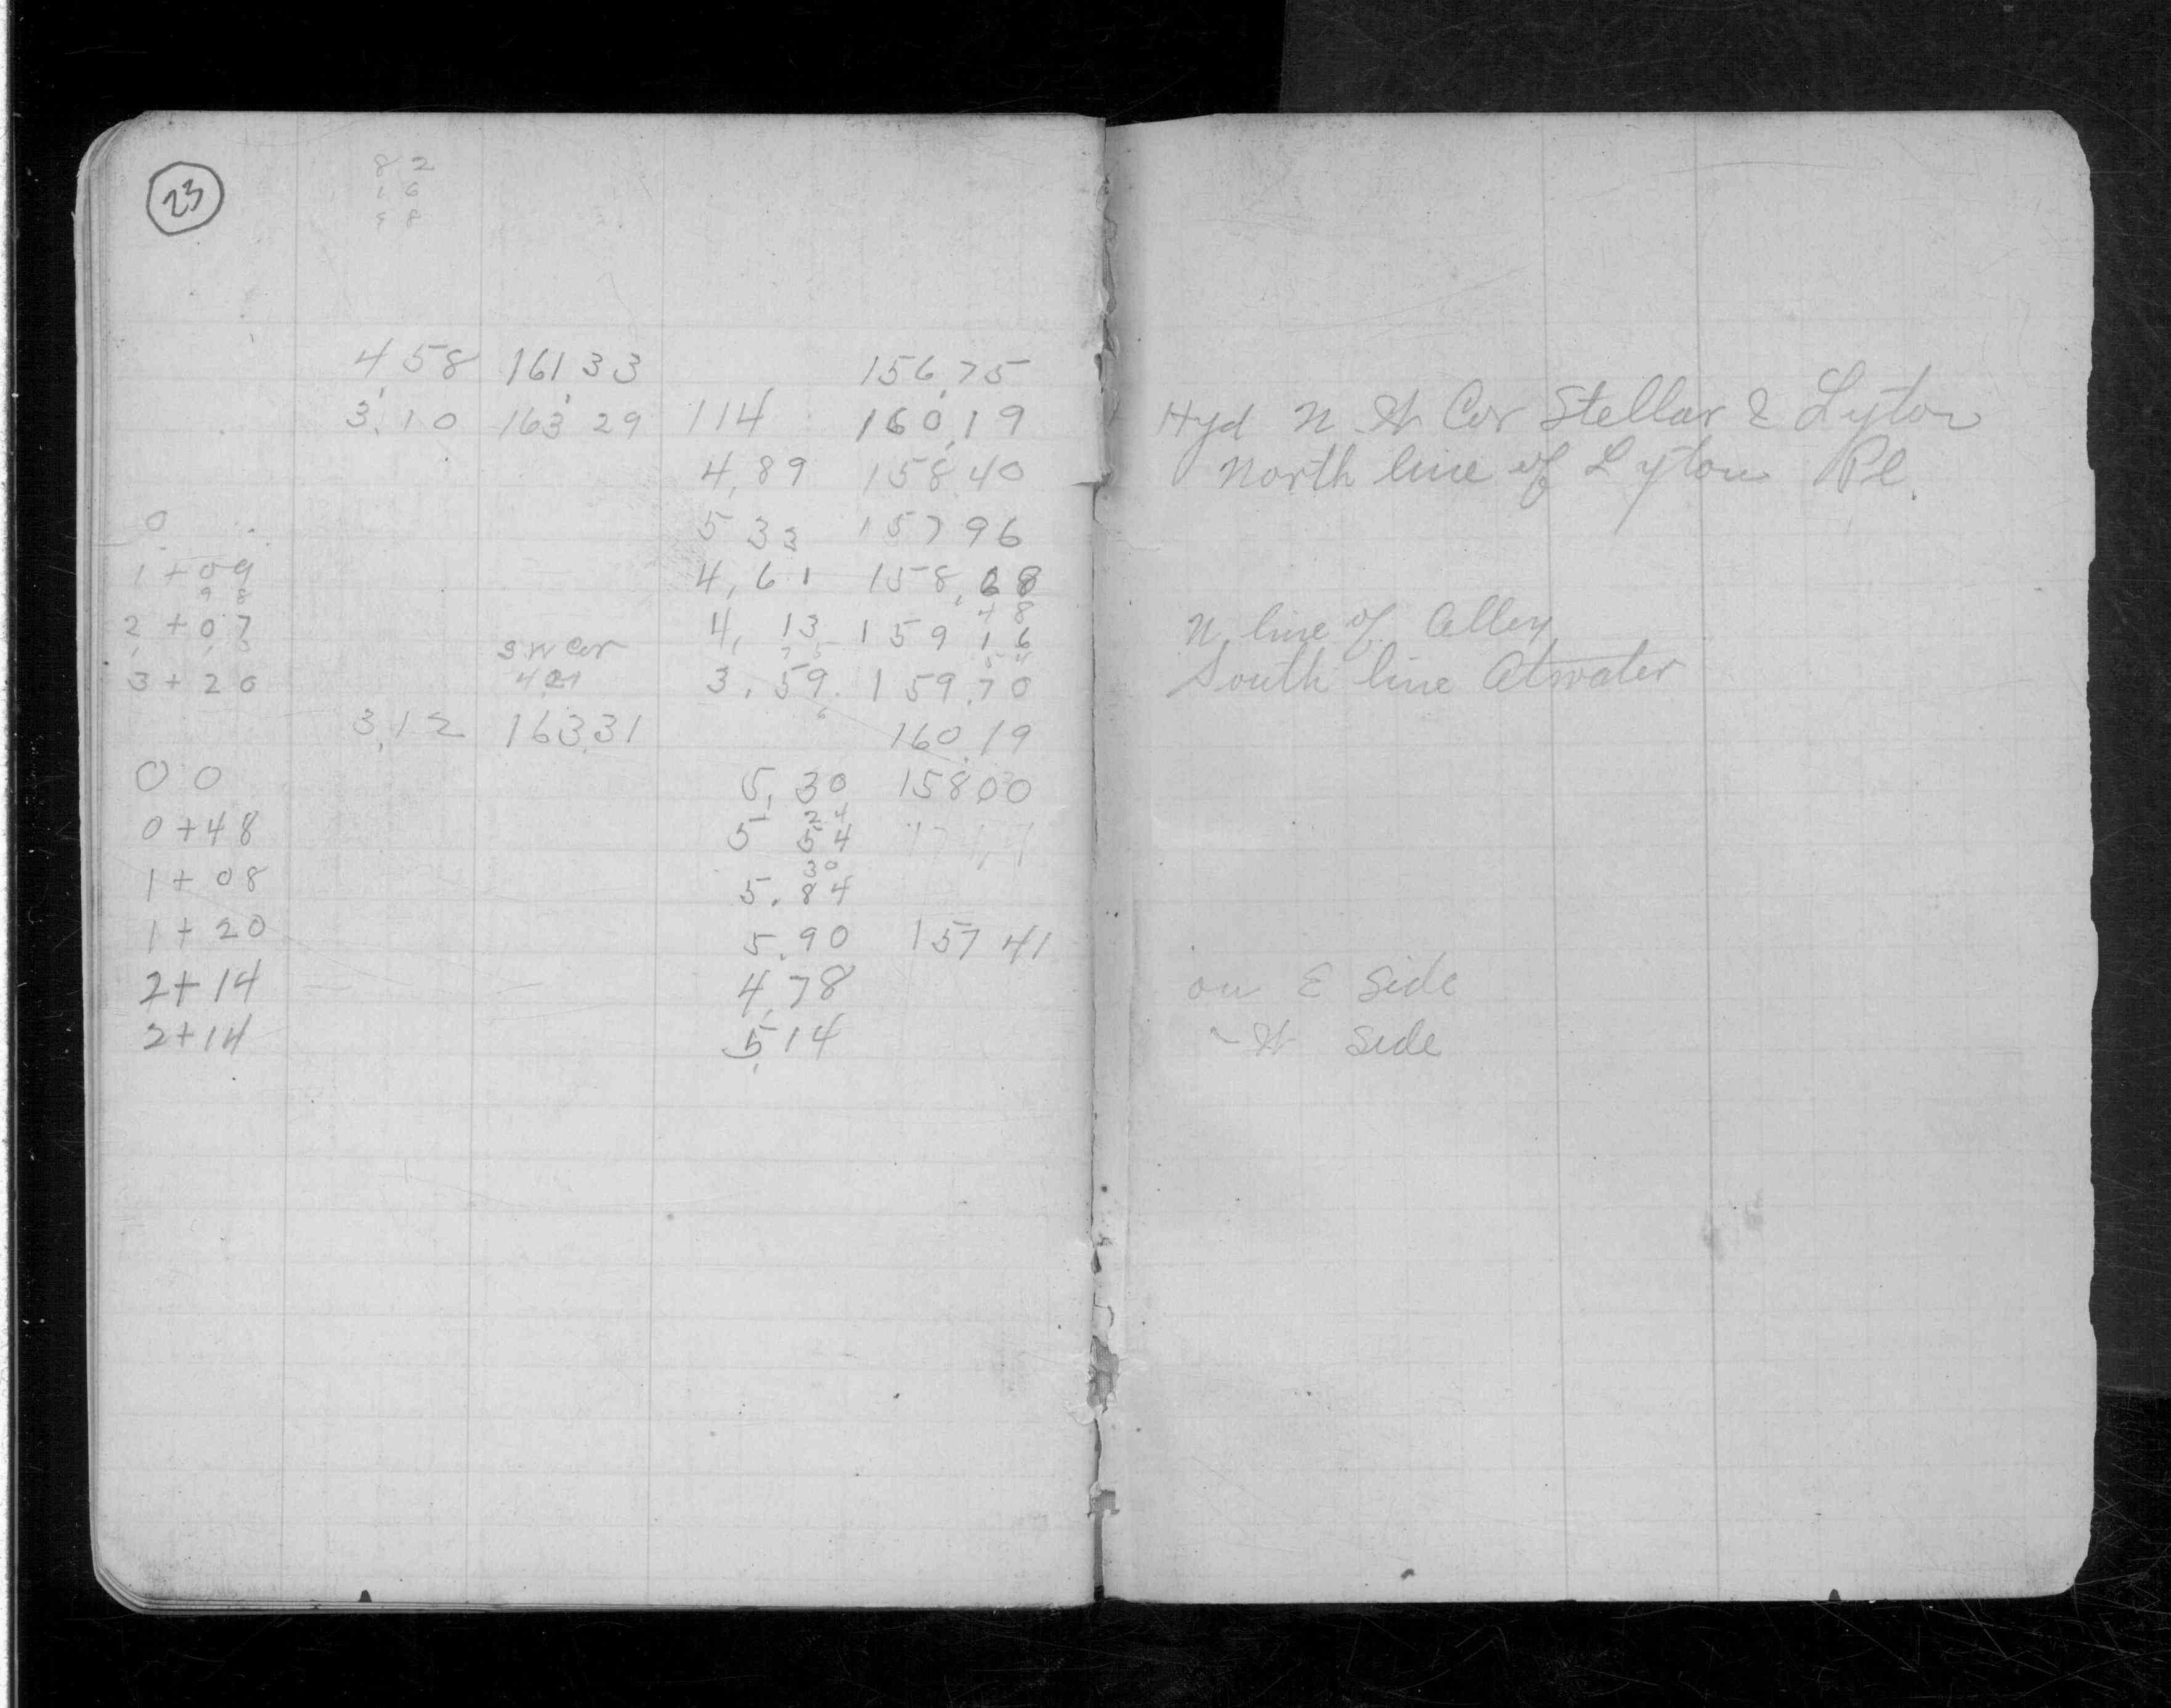 23
82
16
98
4,58 161,33 156,75
3,10 163 29 114 160,19 Hyd N W Cor Stellar & Lyton
4,89 158.40 North line of Lyton Pl.
0 5 33 157 96
1+09 4,61 158,68
98 48
2+07 4, 13 159 16 N. line of Alley
S W Cor
3+20 3,59 159.70 South line Atwater
3,12 163,31 160.19
00 5,30 158 00
24
0+48 5 54
30
1+08 5.84
1+20 5.90 157 41
2+14 4,78 on E Side
2+14 5,14 " W Side